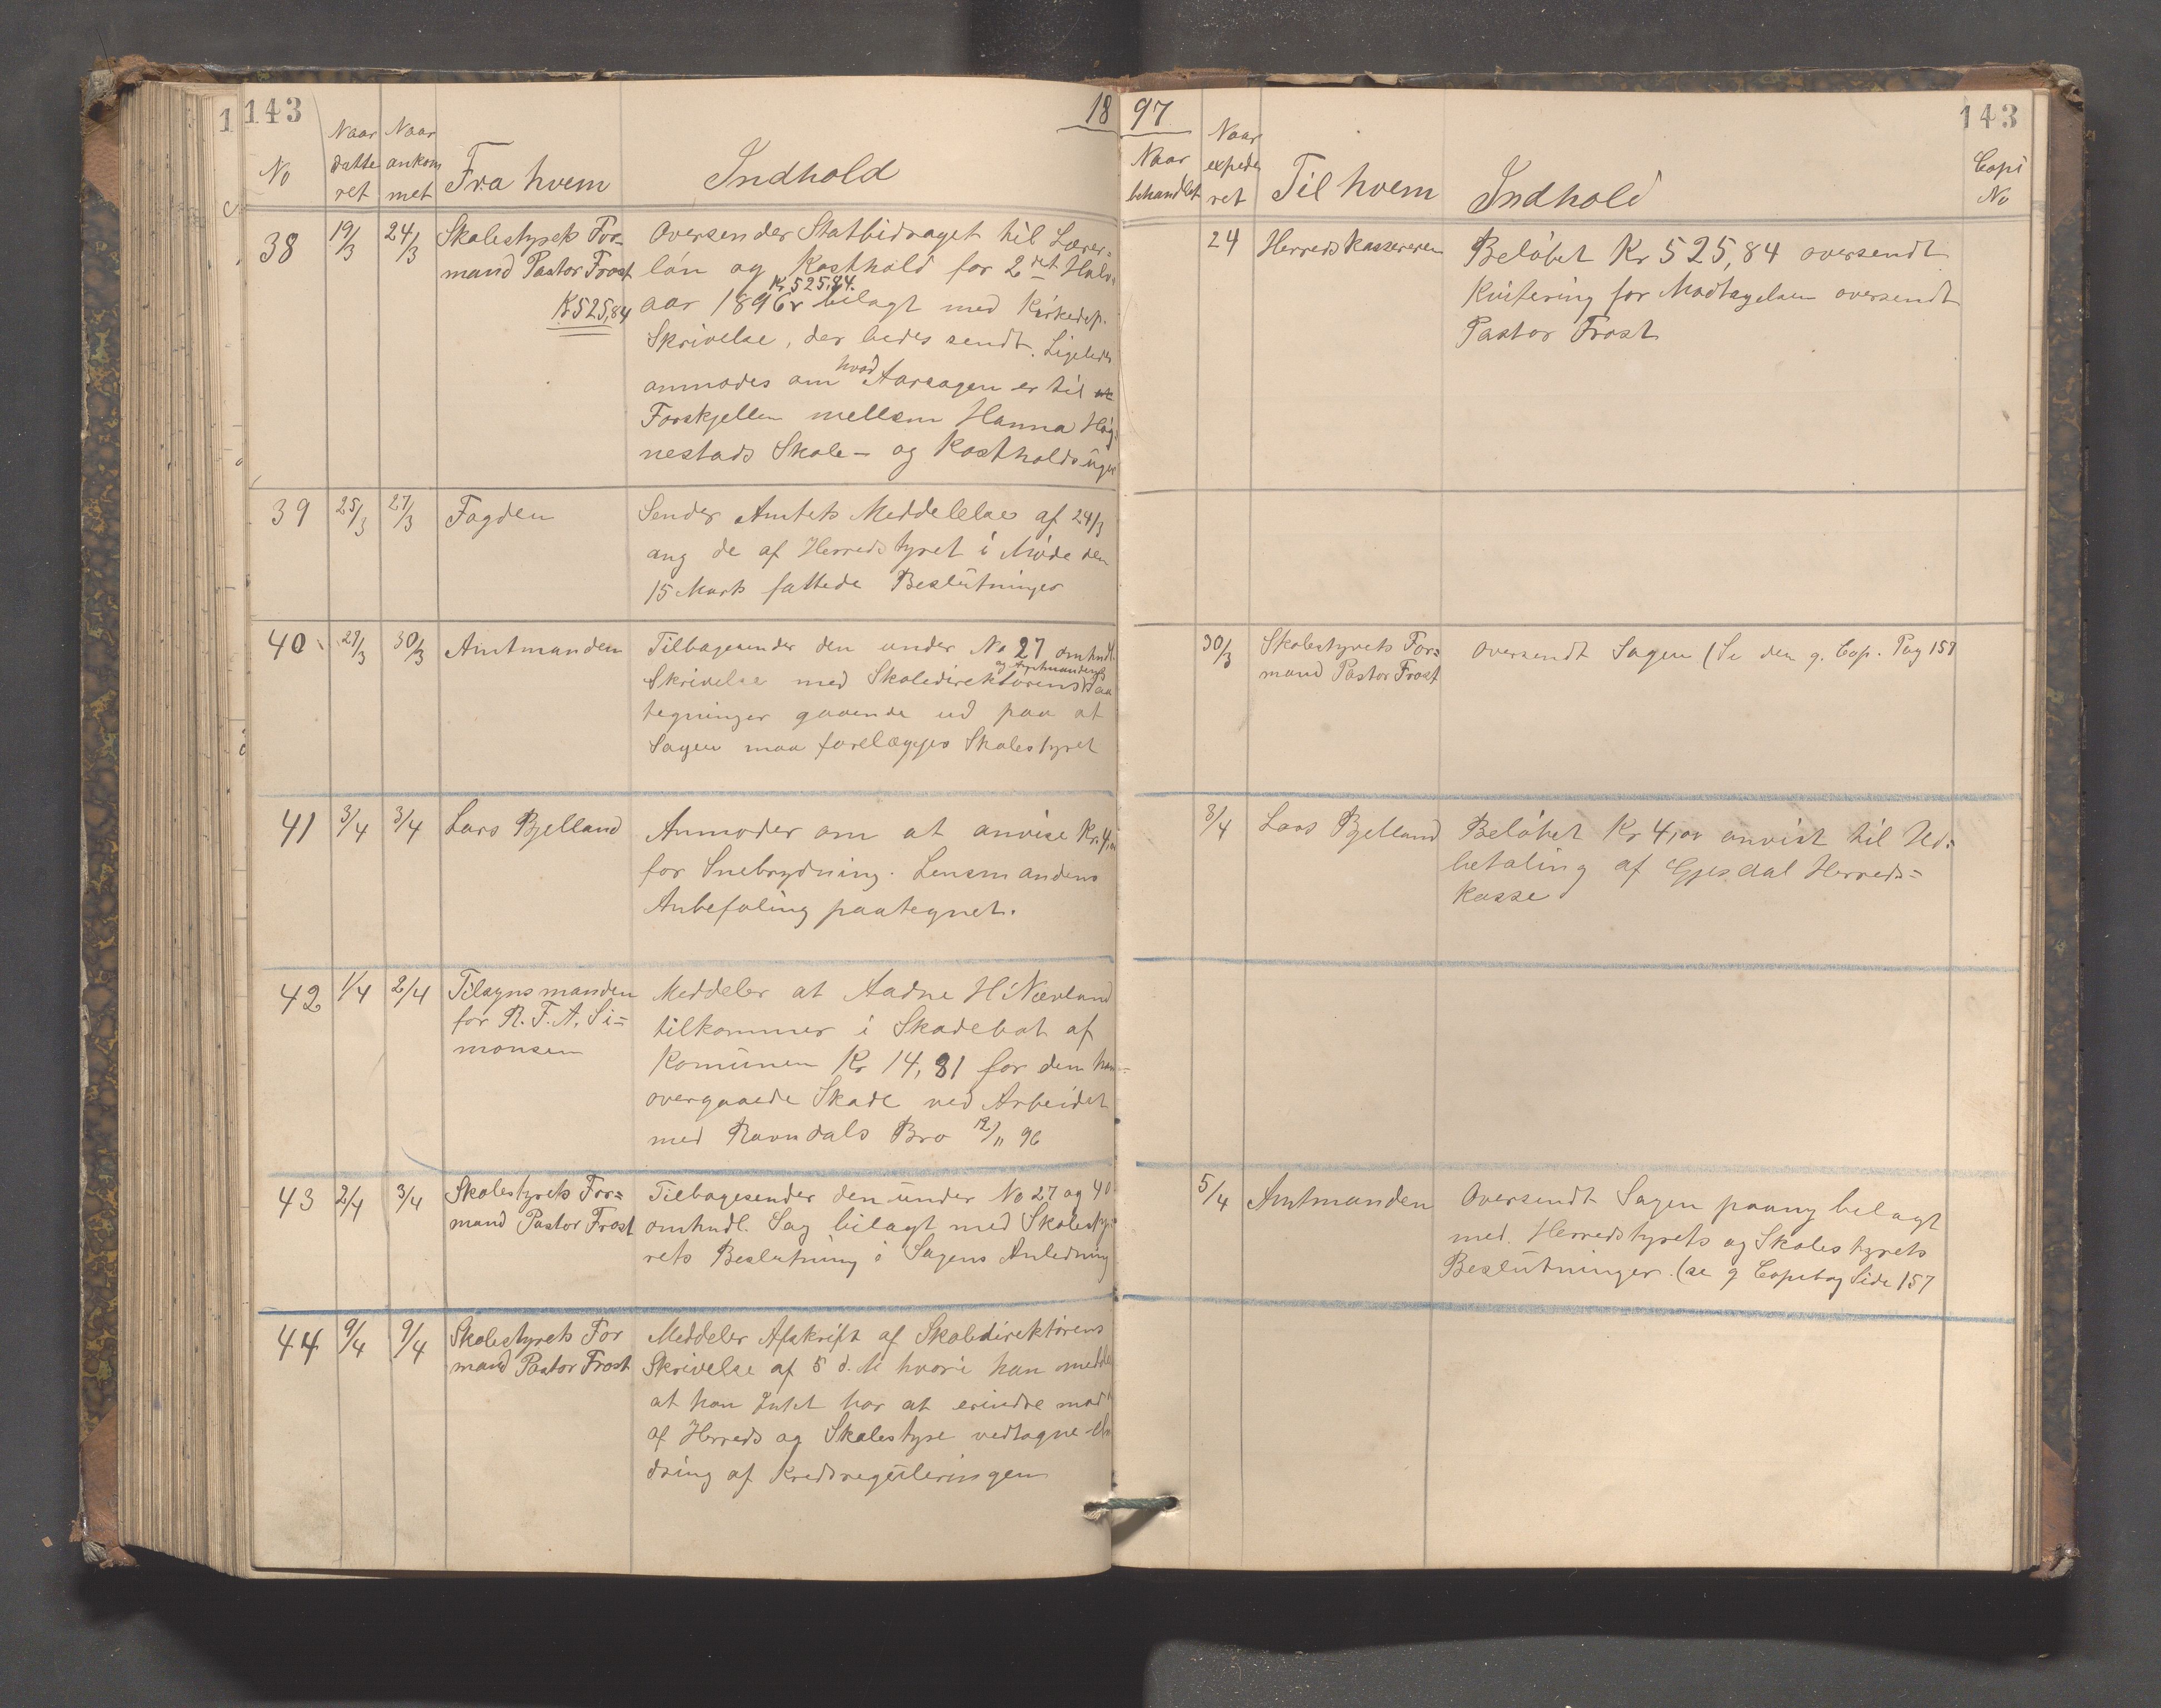 143
18
97
143
No
Naar datteret
Naar ankommet
Fra hvem
Indhold
Naar behandlet
Naar expederet
Til hvem
Indhold
Copi No
38
19/3
24/3
Skolestyrets For-
mand Pastor Frost
Kr 525,84
Oversender Statbidraget til Lærer-
løn og Kosthold for 2det Halv-
Kr 525,84.
aar 1896 bilagt med Kirkedep.
Skrivelse, der bedes sendt. Ligeledes
anmodes om hvad Aarsagen er til
Forskjellen mellem Hanna Høg-
nestads Skole- og Kostholdsuger
24
Herredskassereren
Beløbet Kr 525,84 oversendt
Kvitering for Modtagelsen oversendt
Pastor Frost
39
25/3
27/3
Fogden
Sender Amtets Meddelelse af 24/3
ang de af Herredstyret i Møde den
15 Marts fattede Beslutninger
40
29/3
30/3
Amtmanden
Tilbagesender den under No 27 omhndl.
og Amtmandens
Skrivelse med Skoledirektørens Paa
tegninger gaaende ud paa at
Sagen maa forelægges Skolestyret
30/3
Skolestyrets For=
mand Pastor Frost
Oversendt Sagen (Se den g. Cop. Pag 157
41
3/4
3/4
Lars Bjelland
Anmoder om at anvise Kr. 4,00
for Snebrydning. Lensmandens
Anbefaling paategnet.
3/4
Lars Bjelland
Beløbet Kr 4,00 anvist til Ud=
betaling af Gjesdal Herreds=
kasse
42
1/4
2/4
Tilsynsmanden
for R. F. A. Si=
monsen
Meddeler at Aadne H Nævland
tilkommer i Skadebot af
Komunen Kr 14,81 for den ham
overgaaede Skade ved Arbeidet
med Ravndals Bro 12/11 96
43
2/4
3/4
Skolestyrets For=
mand Pastor Frost
Tilbagesender den under No 27 og 40
omhndl. Sag bilagt med Skolesty-
rets Beslutning i Sagens Anledning
5/4
Amtmanden
Oversendt Sagen paany belagt
med Herredstyrets og Skolestyrets
Beslutninger. (se g Copibog Side 157
44
9/4
9/4
Skolestyrets For
mand Pastor Frost
Meddeler Afskrift af Skoledirektørens
Skrivelse af 5 d. M hvori han meddel
at han Intet har at erindre mod
af Herreds og Skolestyre vedtagne Æn
dring af Kredsreguleringen